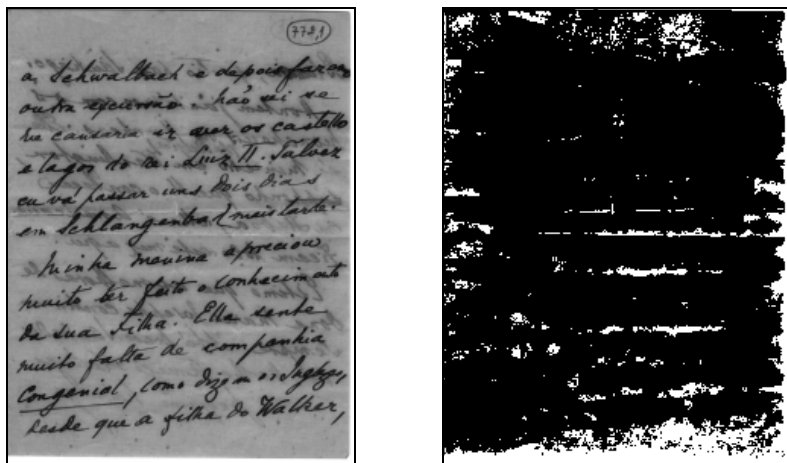 778,1
a Schwalbach e depois fazer
outra excursão: não sei se
me causaria ir ver os castellos
e lagos do rei Luiz II. Talvez
eu vá passar uns dois dias
em Schlangenbad mais tarde.
Minha menina apreciou
muito ter feito o conhecimento
da sua filha. Ella sente
muito falta de companhia
congenial, como dizem os Inglezes,
desde que a filha do Walker,